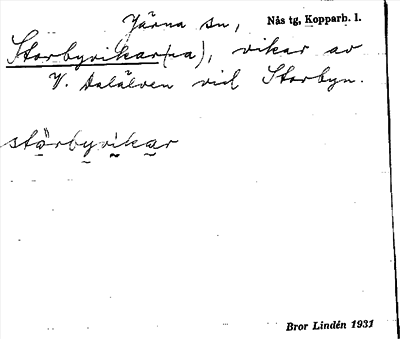 Järna sn, Nås tg, Kopparb. l.
Storbyvikar(na), vikar av
V. Dalälven vid Storbyn.
stȯrbyvikar
Bror Lindén 1931